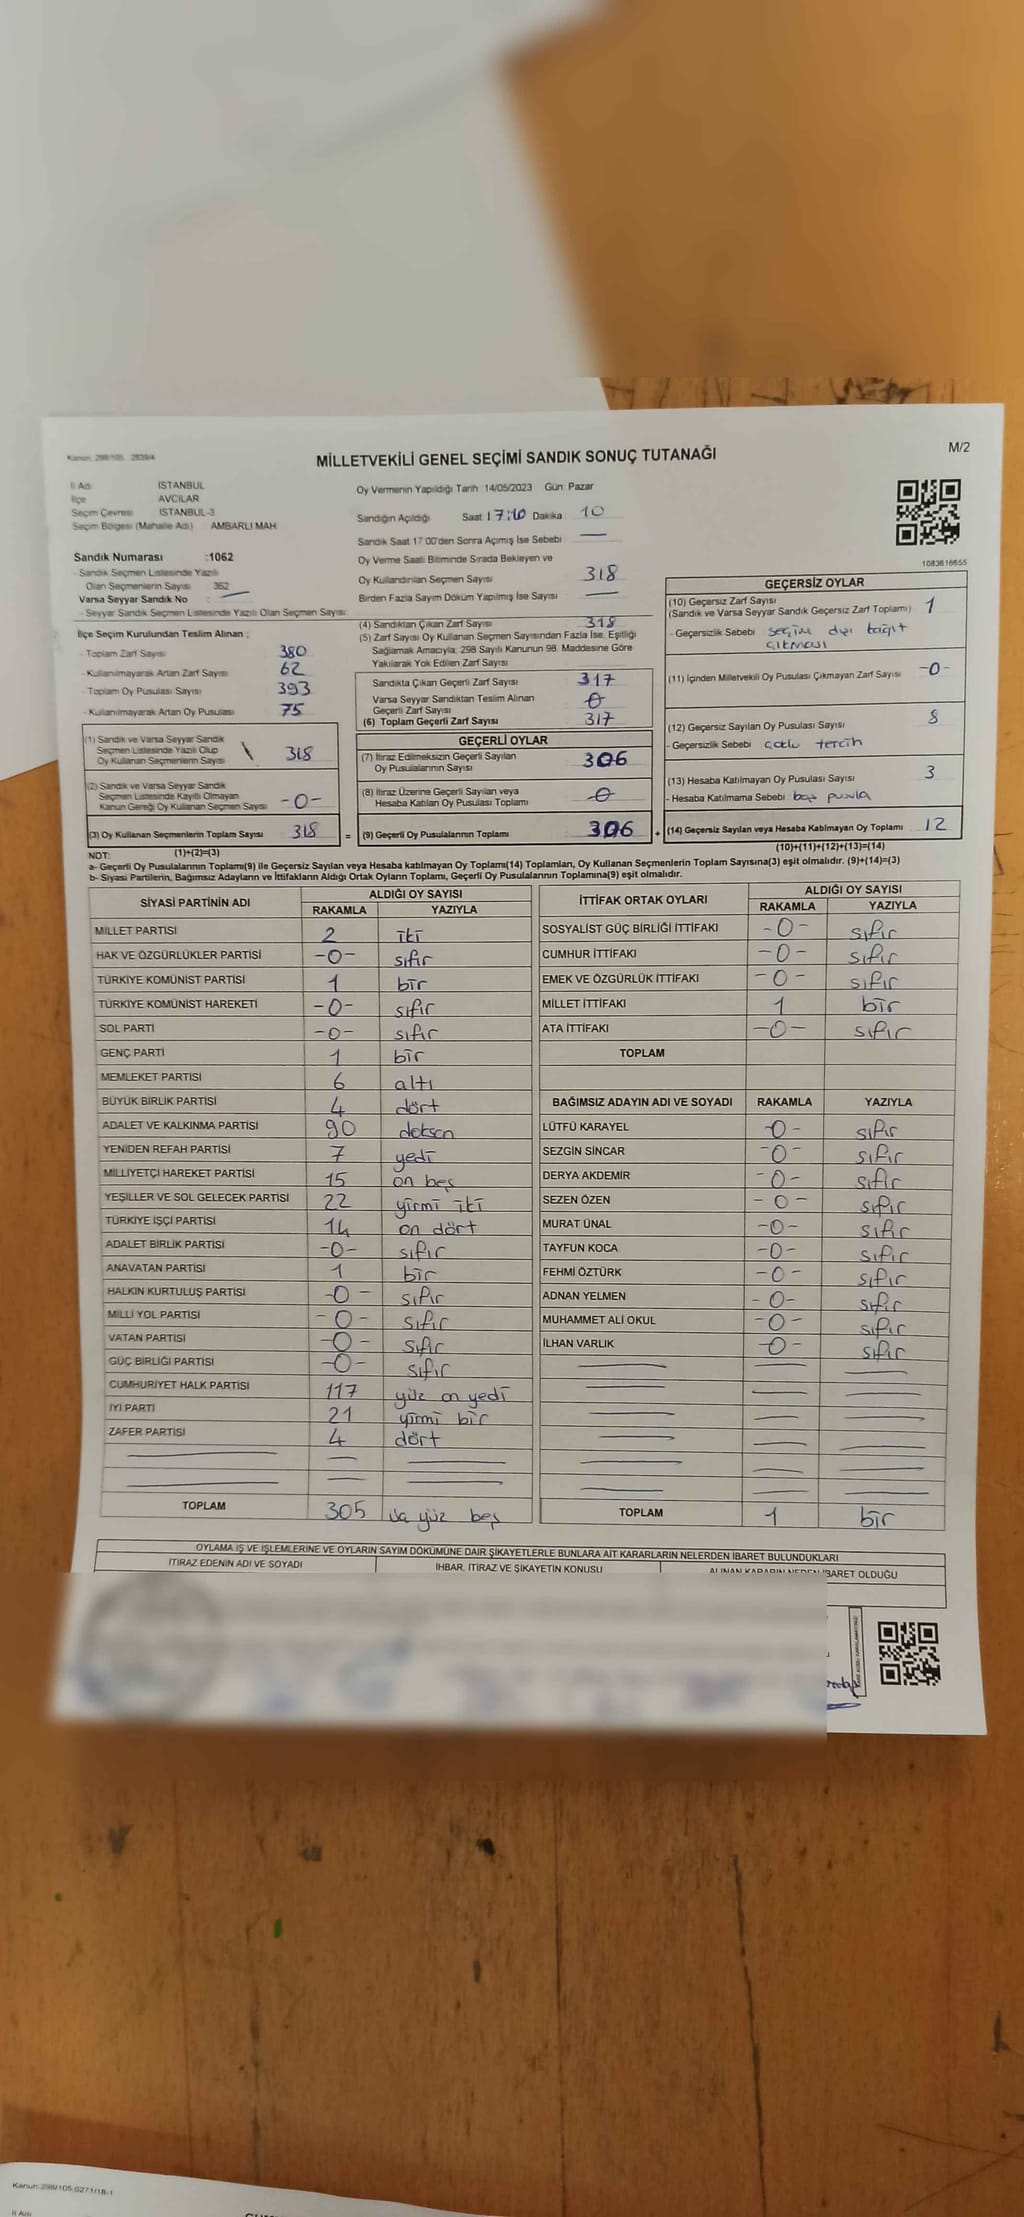 Kanun: 298/105 2839/4
MİLLETVEKİLİ GENEL SEÇİMİ SANDIK SONUÇ TUTANAĞI
M/2
İl Adı İSTANBUL
İlçe AVCILAR
Seçim Çevresi İSTANBUL-3
Seçim Bölgesi (Mahalle Adı) : AMBARLI MAH.
Sandık Numarası :1062
- Sandık Seçmen Listesinde Yazılı
Olan Seçmenlerin Sayısı : 362
Varsa Seyyar Sandık No :
- Seyyar Sandık Seçmen Listesinde Yazılı Olan Seçmen Sayısı:
Oy Vermenin Yapıldığı Tarih :14/05/2023 Gün: Pazar
Sandığın Açıldığı Saat 17:10 Dakika 10
Sandık Saat 17:00'den Sonra Açımış İse Sebebi —
Oy Verme Saati Bitiminde Sırada Bekleyen ve
Oy Kullandırılan Seçmen Sayısı 318
Birden Fazla Sayım Döküm Yapılmış İse Sayısı —
1083616655
İlçe Seçim Kurulundan Teslim Alınan ;
- Toplam Zarf Sayısı 380
- Kullanılmayarak Artan Zarf Sayısı 62
- Toplam Oy Pusulası Sayısı 393
- Kullanılmayarak Artan Oy Pusulası 75
(1) Sandık ve Varsa Seyyar Sandık
Seçmen Listesinde Yazılı Olup
Oy Kullanan Seçmenlerin Sayısı 318
(2) Sandık ve Varsa Seyyar Sandık
Seçmen Listesinde Kayıtlı Olmayan
Kanun Gereği Oy Kullanan Seçmen Sayısı -0-
(3) Oy Kullanan Seçmenlerin Toplam Sayısı 318 =
(1)+(2)=(3)
(4) Sandıktan Çıkan Zarf Sayısı 318
(5) Zarf Sayısı Oy Kullanan Seçmen Sayısından Fazla İse, Eşitliği
Sağlamak Amacıyla, 298 Sayılı Kanunun 98. Maddesine Göre
Yakılarak Yok Edilen Zarf Sayısı
Sandıkta Çıkan Geçerli Zarf Sayısı 317
Varsa Seyyar Sandıktan Teslim Alınan
Geçerli Zarf Sayısı 0
(6) Toplam Geçerli Zarf Sayısı 317
GEÇERLİ OYLAR
(7) İtiraz Edilmeksizin Geçerli Sayılan
Oy Pusulalarının Sayısı 306
(8) İtiraz Üzerine Geçerli Sayılan veya
Hesaba Katılan Oy Pusulası Toplamı 0
(9) Geçerli Oy Pusulalarının Toplamı 306 +
GEÇERSİZ OYLAR
(10) Geçersiz Zarf Sayısı
(Sandık ve Varsa Seyyar Sandık Geçersiz Zarf Toplamı) 1
- Geçersizlik Sebebi seçim dışı kağıt
çıkması
(11) İçinden Milletvekili Oy Pusulası Çıkmayan Zarf Sayısı -0-
(12) Geçersiz Sayılan Oy Pusulası Sayısı 8
- Geçersizlik Sebebi çoklu tercih
(13) Hesaba Katılmayan Oy Pusulası Sayısı 3
- Hesaba Katılmama Sebebi boş pusula
(14) Geçersiz Sayılan veya Hesaba Katılmayan Oy Toplamı 12
(10)+(11)+(12)+(13)=(14)
NOT:
a- Geçerli Oy Pusulaları Toplamı(9) ile Geçersiz Sayılan veya Hesaba katılmayan Oy Toplamı(14) Toplamları, Oy Kullanan Seçmenlerin Toplam Sayısına(3) eşit olmalıdır. (9)+(14)=(3)
b- Siyasi Partilerin, Bağımsız Adayların ve İttifakların Aldığı Ortak Oyların Toplamı, Geçerli Oy Pusulalarının Toplamına(9) eşit olmalıdır.
SİYASİ PARTİNİN ADI ALDIĞI OY SAYISI
RAKAMLA YAZIYLA
MİLLET PARTİSİ 2 iki
HAK VE ÖZGÜRLÜKLER PARTİSİ -0- sıfır
TÜRKİYE KOMÜNİST PARTİSİ 1 bir
TÜRKİYE KOMÜNİST HAREKETİ -0- sıfır
SOL PARTİ -0- sıfır
GENÇ PARTİ 1 bir
MEMLEKET PARTİSİ 6 altı
BÜYÜK BİRLİK PARTİSİ 4 dört
ADALET VE KALKINMA PARTİSİ 90 doksan
YENİDEN REFAH PARTİSİ 7 yedi
MİLLİYETÇİ HAREKET PARTİSİ 15 on beş
YEŞİLLER VE SOL GELECEK PARTİSİ 22 yirmi iki
TÜRKİYE İŞÇİ PARTİSİ 14 on dört
ADALET BİRLİK PARTİSİ -0- sıfır
ANAVATAN PARTİSİ 1 bir
HALKIN KURTULUŞ PARTİSİ -0- sıfır
MİLLİ YOL PARTİSİ -0- sıfır
VATAN PARTİSİ -0- sıfır
GÜÇ BİRLİĞİ PARTİSİ -0- sıfır
CUMHURİYET HALK PARTİSİ 117 yüz on yedi
İYİ PARTİ 21 yirmi bir
ZAFER PARTİSİ 4 dört
TOPLAM 305 üç yüz beş
İTTİFAK ORTAK OYLARI ALDIĞI OY SAYISI
RAKAMLA YAZIYLA
SOSYALİST GÜÇ BİRLİĞİ İTTİFAKI -0- sıfır
CUMHUR İTTİFAKI -0- sıfır
EMEK VE ÖZGÜRLÜK İTTİFAKI -0- sıfır
MİLLET İTTİFAKI 1 bir
ATA İTTİFAKI -0- sıfır
TOPLAM
BAĞIMSIZ ADAYIN ADI VE SOYADI RAKAMLA YAZIYLA
LÜTFÜ KARAYEL -0- sıfır
SEZGİN SİNCAR -0- sıfır
DERYA AKDEMİR -0- sıfır
SEZEN ÖZEN -0- sıfır
MURAT ÜNAL -0- sıfır
TAYFUN KOCA -0- sıfır
FEHMİ ÖZTÜRK -0- sıfır
ADNAN YELMEN -0- sıfır
MUHAMMET ALİ OKUL -0- sıfır
İLHAN VARLIK -0- sıfır
TOPLAM 1 bir
OYLAMA İŞ VE İŞLEMLERİNE VE OYLARIN SAYIM DÖKÜMÜNE DAİR ŞİKAYETLERLE BUNLARA AİT KARARLARIN NELERDEN İBARET BULUNDUKLARI
İTİRAZ EDENİN ADI VE SOYADI İHBAR, İTİRAZ VE ŞİKAYETİN KONUSU ALINAN KARARIN NEDEN İBARET OLDUĞU
Kanun:298/105,0271/18-1
İl Adı